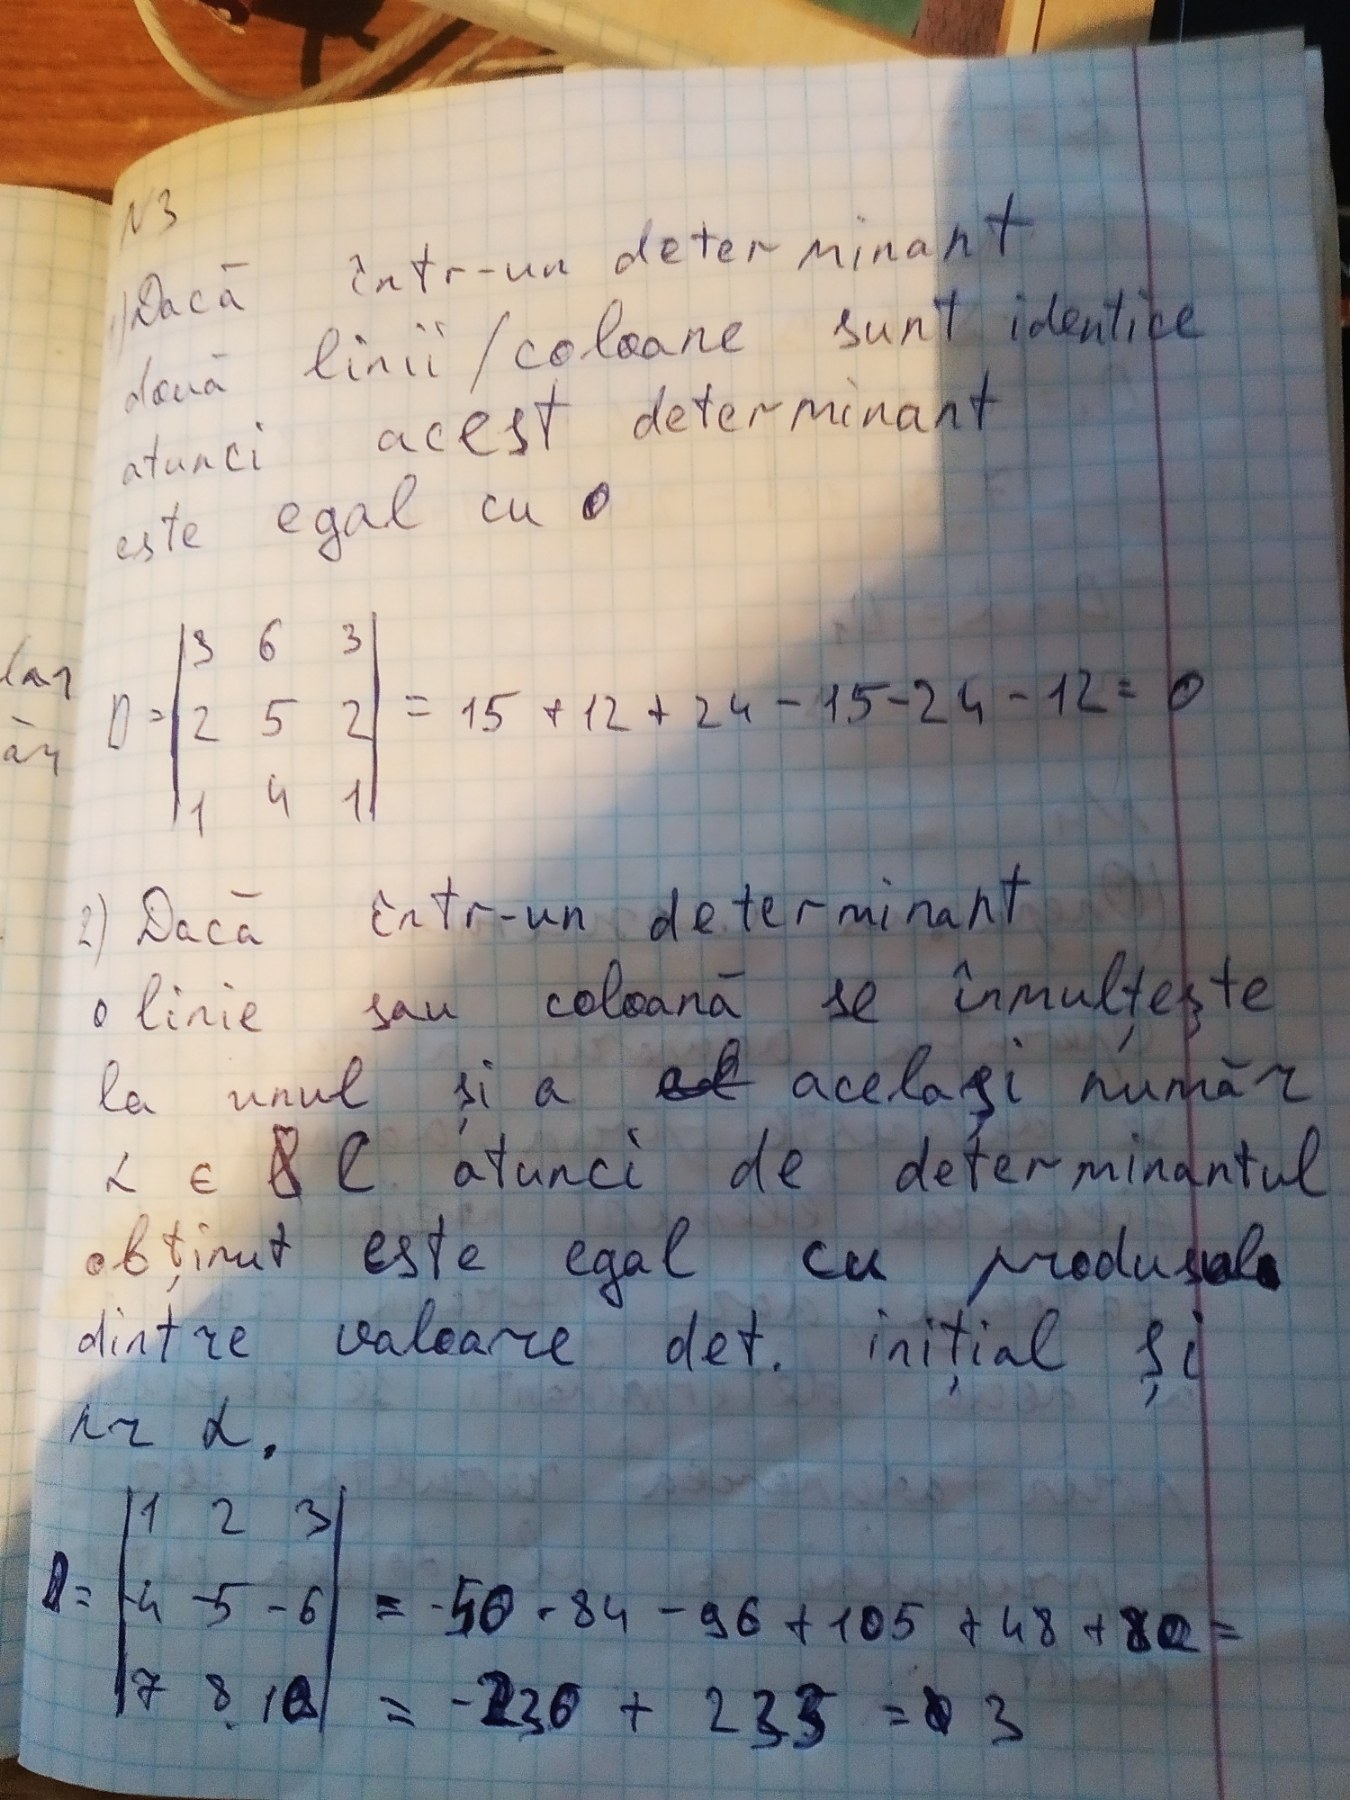 N3
1) Dacă într-un determinant
două linii/coloane sunt identice
atunci acest determinant
este egal cu 0
D = | 3 6 3 |
| 2 5 2 | = 15 + 12 + 24 - 15 - 24 - 12 = 0
| 1 4 1 |
2) Dacă într-un determinant
o linie sau coloană se înmulțește
la unul și a același număr
α ∈ C atunci de determinantul
obținut este egal cu produsul
dintre valoare det. inițial și
nr α.
| 1 2 3 |
D = | -4 -5 -6 | = -50 - 84 - 96 + 105 + 48 + 80 =
| 7 8 10 | = -230 + 233 = 3